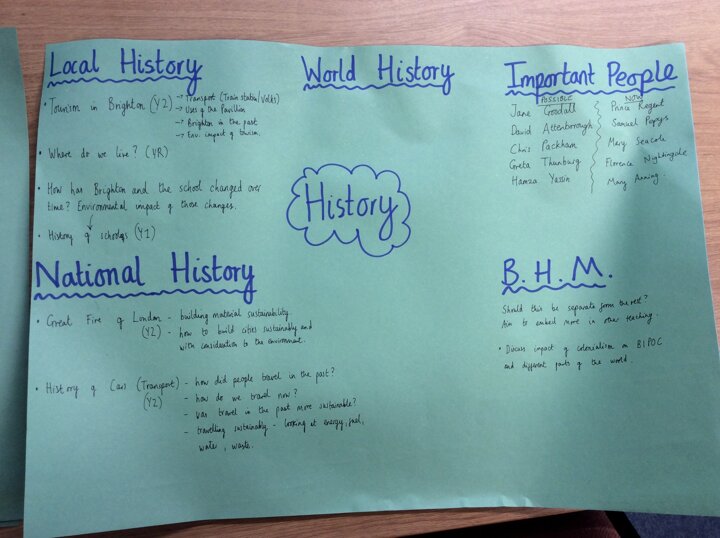 Local History
• Tourism in Brighton (Y2) → Transport (Train station/Volks)
→ Uses of the Pavillion
→ Brighton in the past
→ Env. impact of tourism.
• Where do we live? (YR)
• How has Brighton and the school changed over
time? Environmental impact of those changes.
• History of schools (Y1)
World History
Important People
POSSIBLE
Jane Goodall
David Attenborough
Chris Packham
Greta Thunburg
Hamza Yassin
NOW
Prince Regent
Samuel Papeys
Mary Seacole
Florence Nightingale
Mary Anning.
History
National History
• Great Fire of London - building material sustainability.
(Y2) - how to build cities sustainably and
with consideration to the environment.
• History of Cars (Transport) - how did people travel in the past?
(Y2) - how do we travel now?
- was travel in the past more sustainable?
- travelling sustainably - looking at energy, fuel,
waste, waste.
B.H.M.
Should this be separate form the rest?
Aim to embed more in our teaching.
• Discuss impact of colonialism on BIPOC
and different parts of the world.